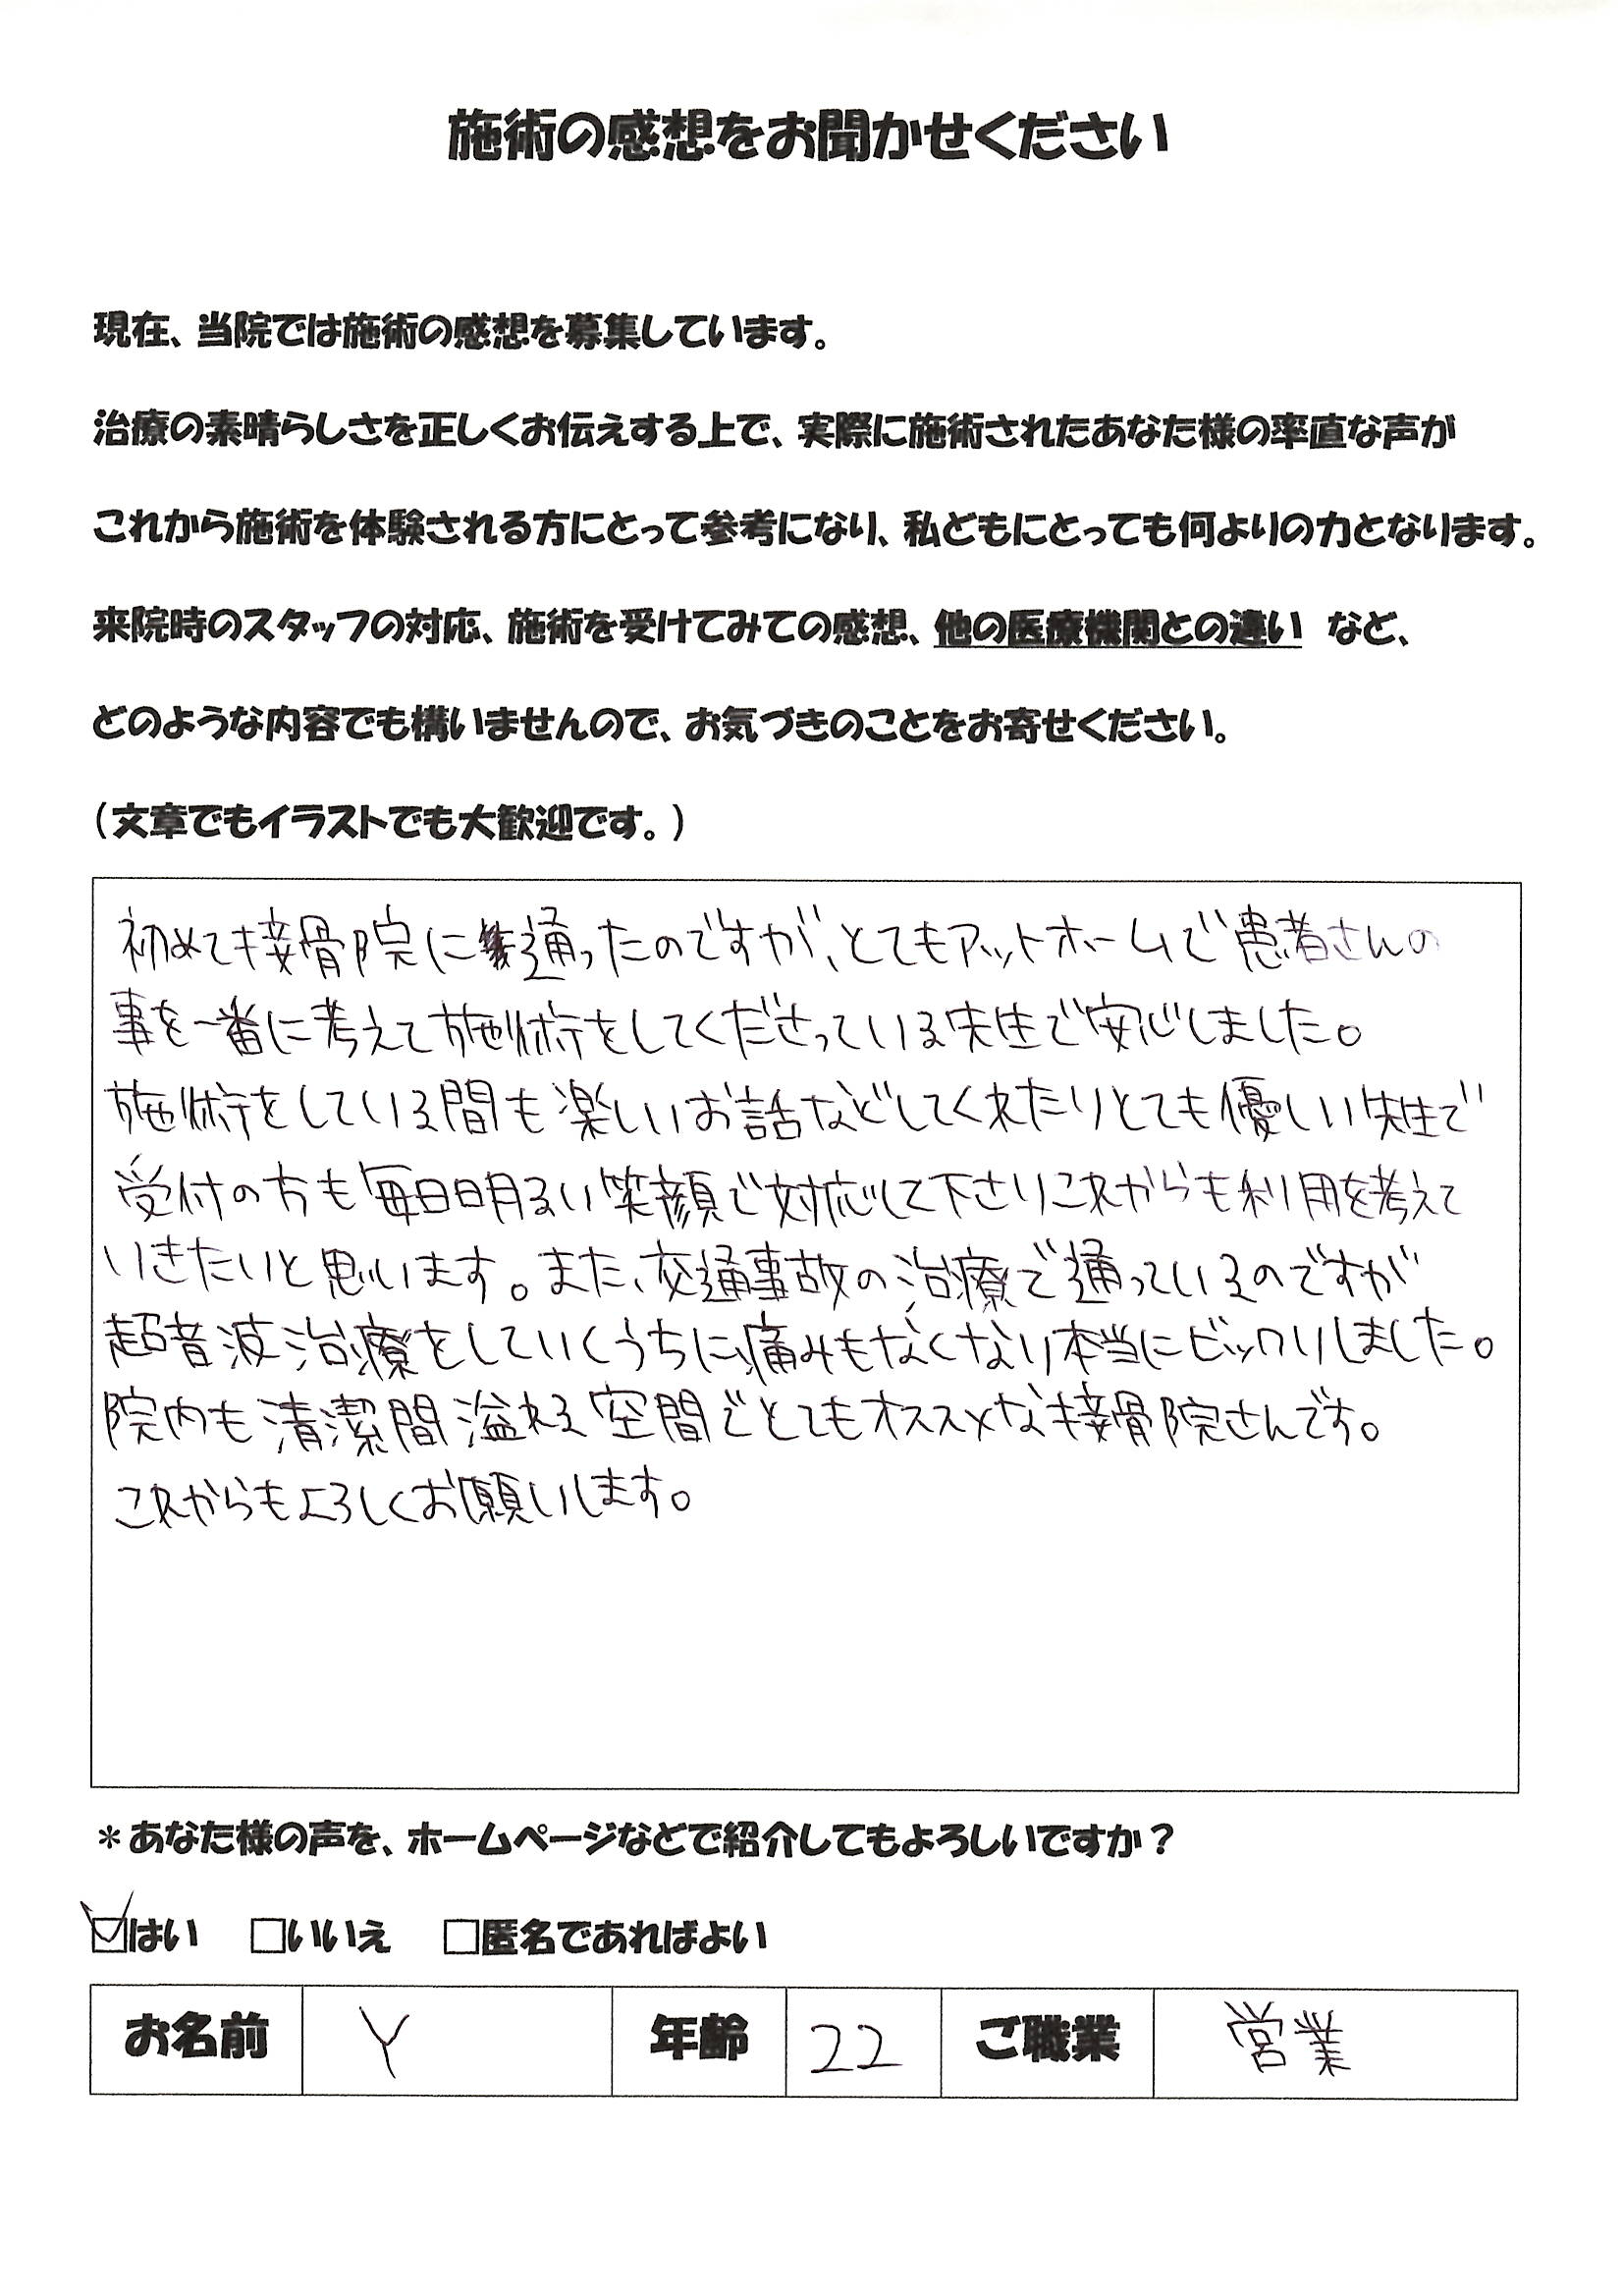 施術の感想をお聞かせください
現在、当院では施術の感想を募集しています。
治療の素晴らしさを正しくお伝えする上で、実際に施術されたあなた様の率直な声が
これから施術を体験される方にとって参考になり、私どもにとっても何よりの力となります。
来院時のスタッフの対応、施術を受けてみての感想、他の医療機関との違い など、
どのような内容でも構いませんので、お気づきのことをお寄せください。
（文章でもイラストでも大歓迎です。）
初めて接骨院に通ったのですが、とてもアットホームで患者さんの
事を一番に考えて施術をしてくださっている先生で安心しました。
施術をしている間も楽しいお話などしてくれたりとても優しい先生で
受付の方も毎日明るい笑顔で対応して下さりこれからも利用を考えて
いきたいと思います。また、交通事故の治療で通っているのですが
超音波治療をしていくうちに、痛みもなくなり本当にビックリしました。
院内も清潔間溢れる空間でとてもオススメな接骨院さんです。
これからもよろしくお願いします。
＊あなた様の声を、ホームページなどで紹介してもよろしいですか？
☑はい □いいえ □匿名であればよい
お名前 Y 年齢 22 ご職業 営業